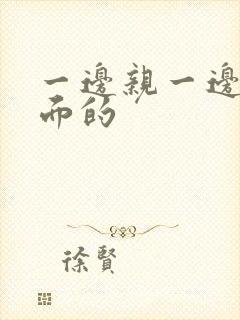 一邊親一邊
而的
徐賢